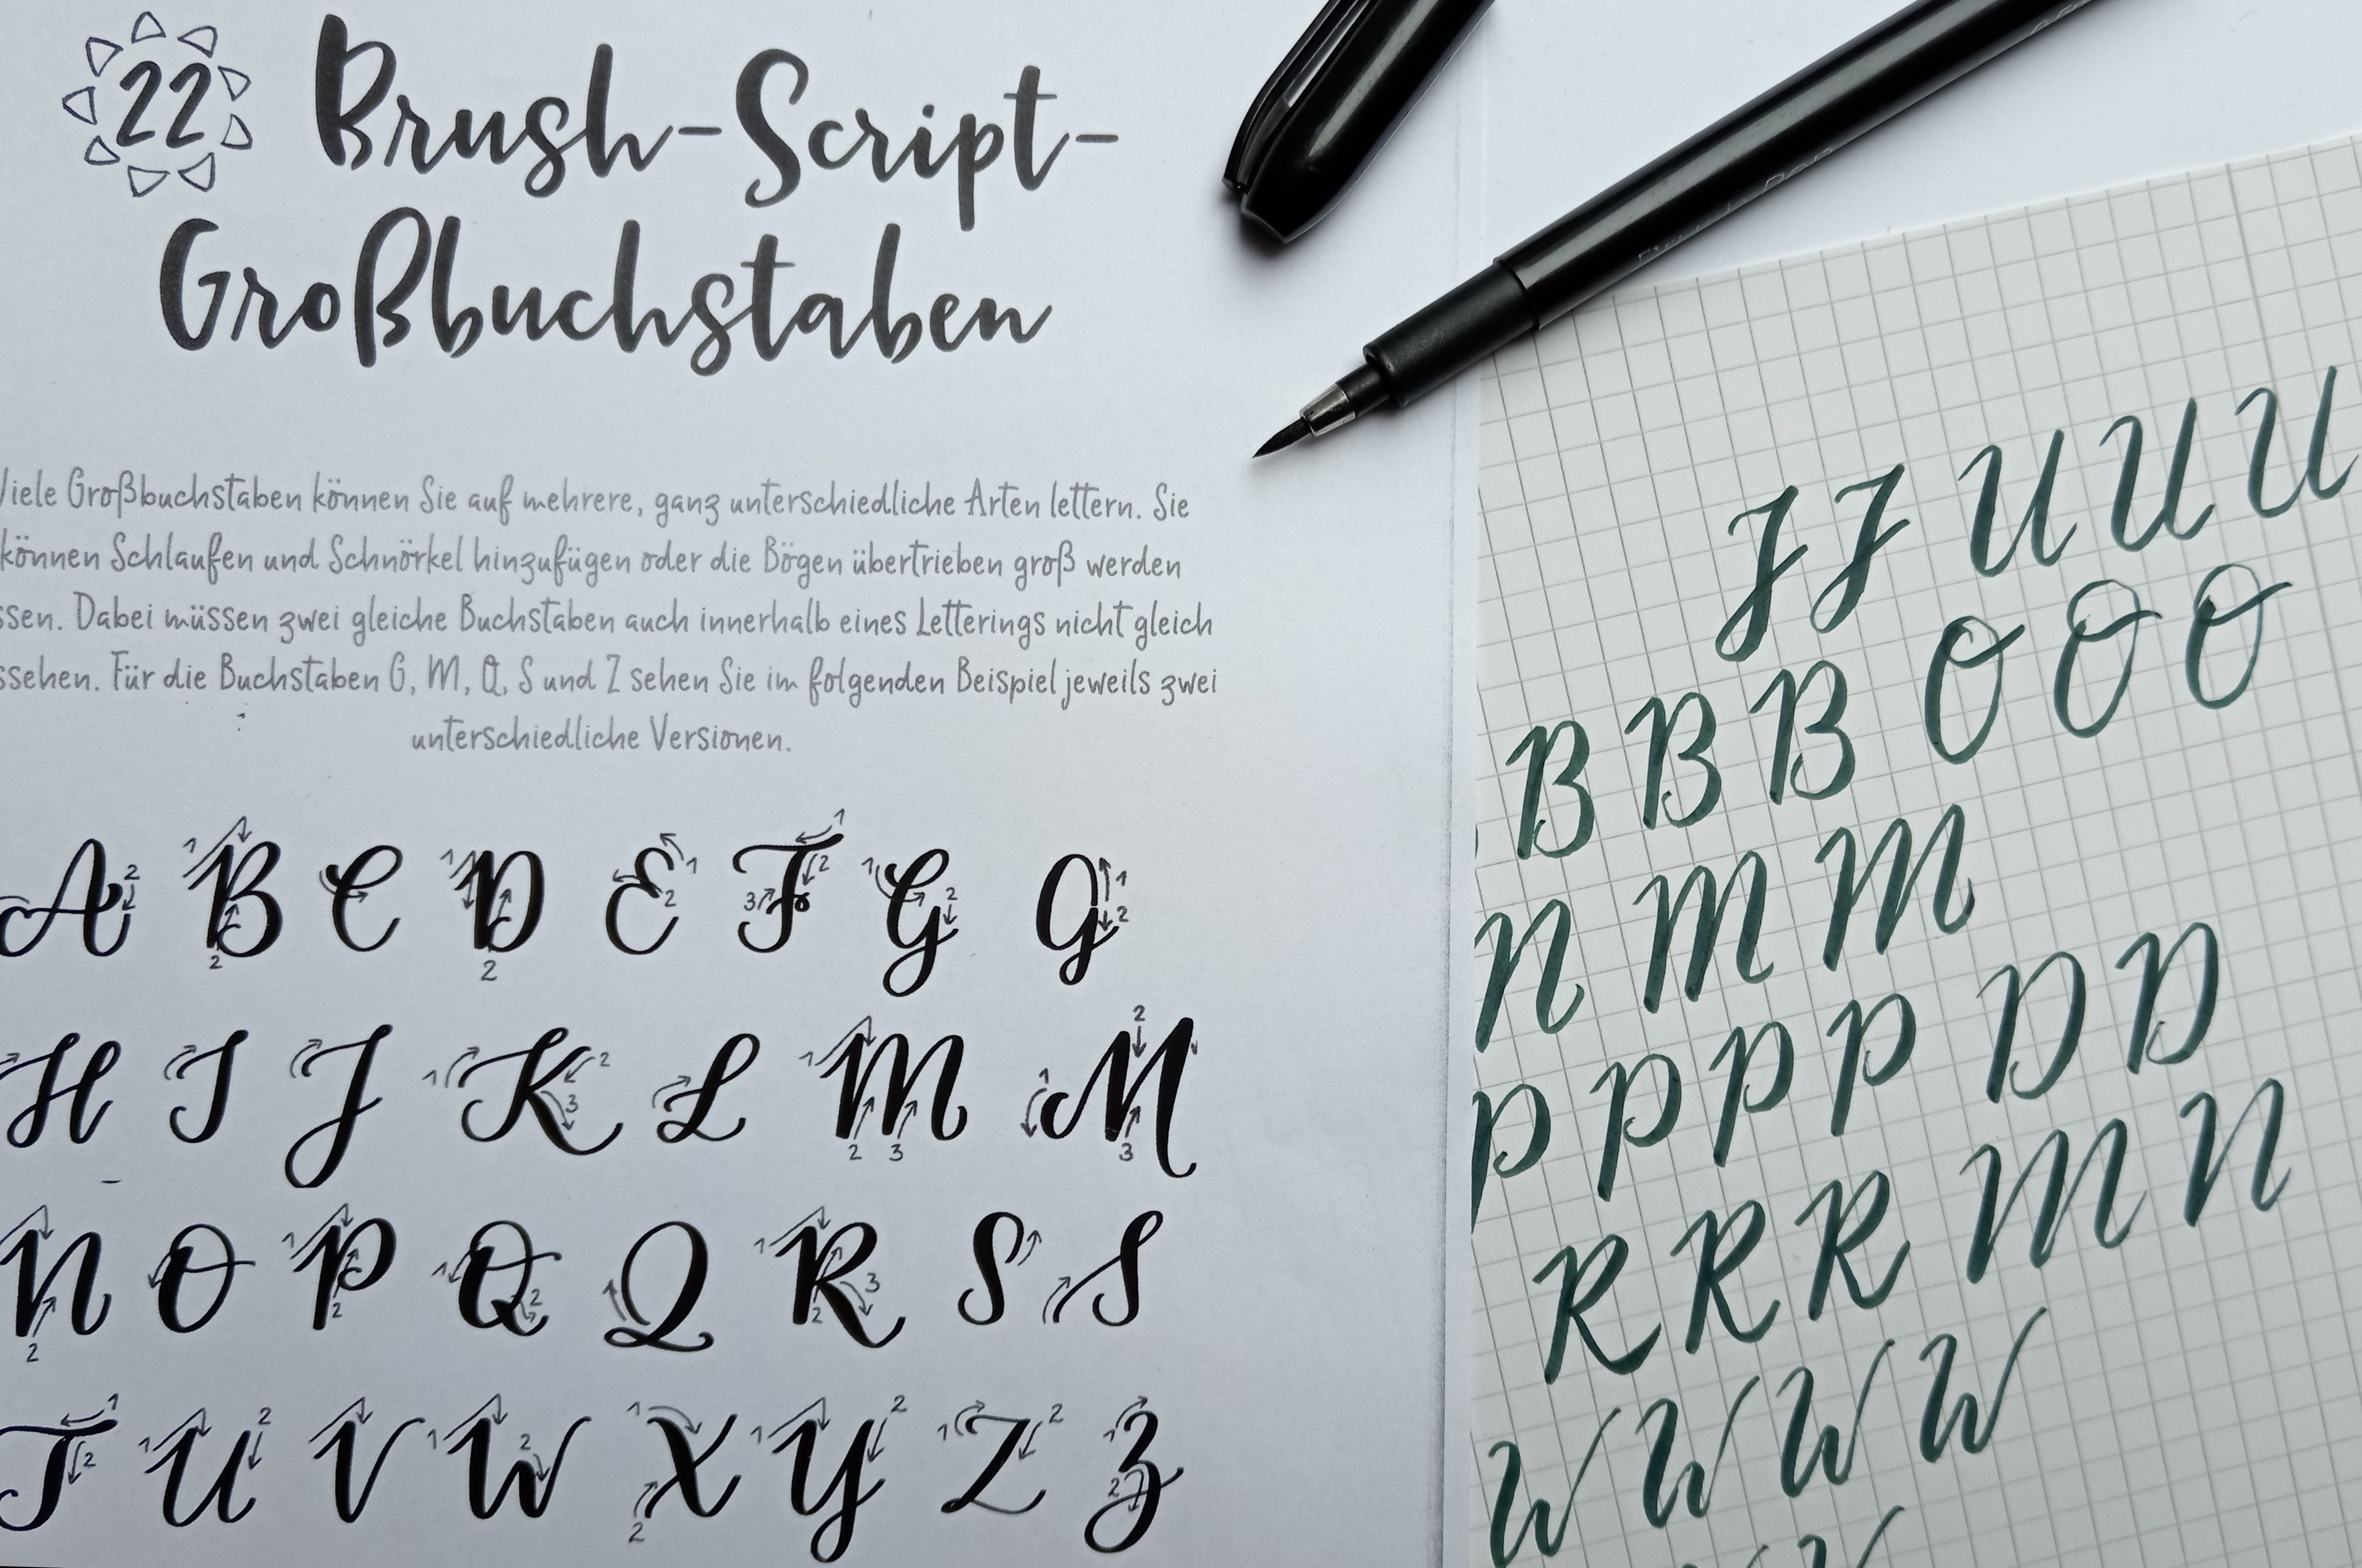 22 Brush-Script-
Großbuchstaben
Viele Großbuchstaben können Sie auf mehrere, ganz unterschiedliche Arten lettern. Sie
können Schlaufen und Schnörkel hinzufügen oder die Bögen übertrieben groß werden
ssen. Dabei müssen zwei gleiche Buchstaben auch innerhalb eines Letterings nicht gleich
ssehen. Für die Buchstaben G, M, Q, S und Z sehen Sie im folgenden Beispiel jeweils zwei
unterschiedliche Versionen.
A B C D E F G G
H I J K L M M
N O P Q Q R S S
T U V W X Y Z Z
J J U U U
B B B O O O
N M M
P P P P D D
R R R M N
W W W W